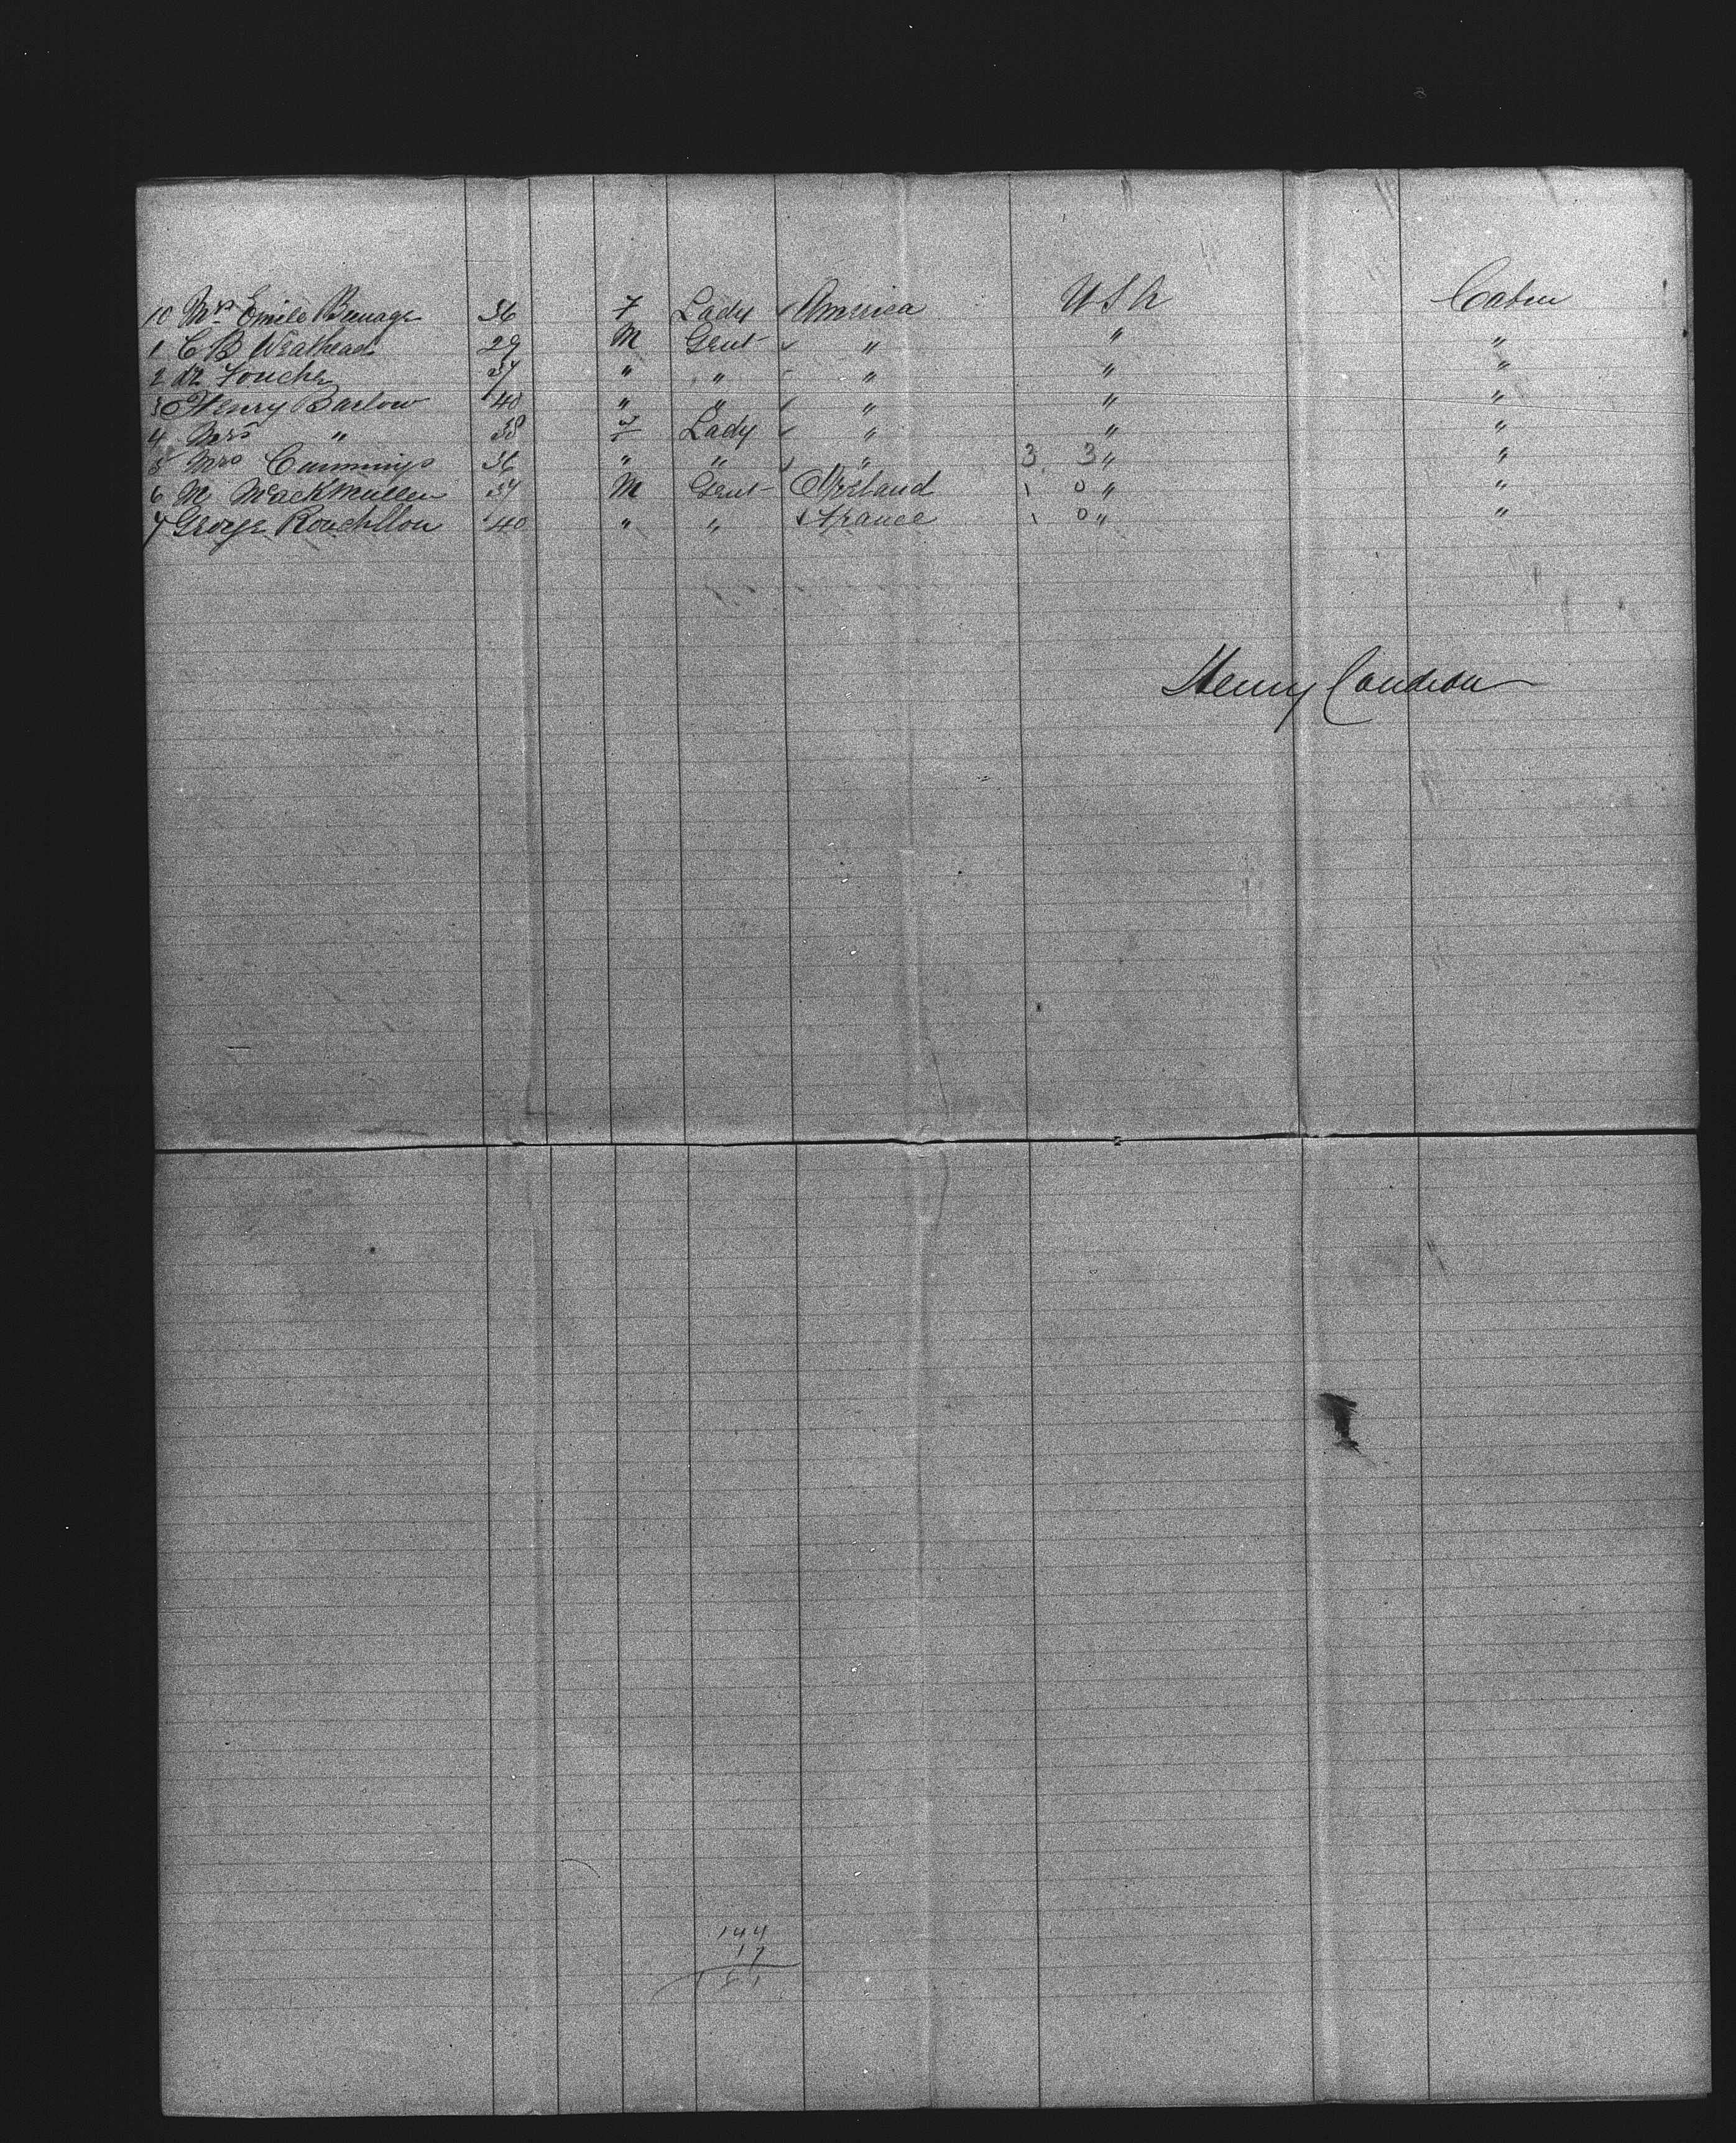 10 Mrs Emile 36 F Lady America U S A Cabin
1 C B Weathead 29 M Gent " " "
2 dr Fouche 37 " " " " "
3 Henry Barlow 40 " " " " "
4 Mrs " 38 F Lady " " "
5 Mrs Cummings 36 " " " 3 3 " "
6 M MackMullen 34 M Gent Ireland 1 0 " "
7 George Rouchllon 40 " " France 1 0 " "
Henry
144
17